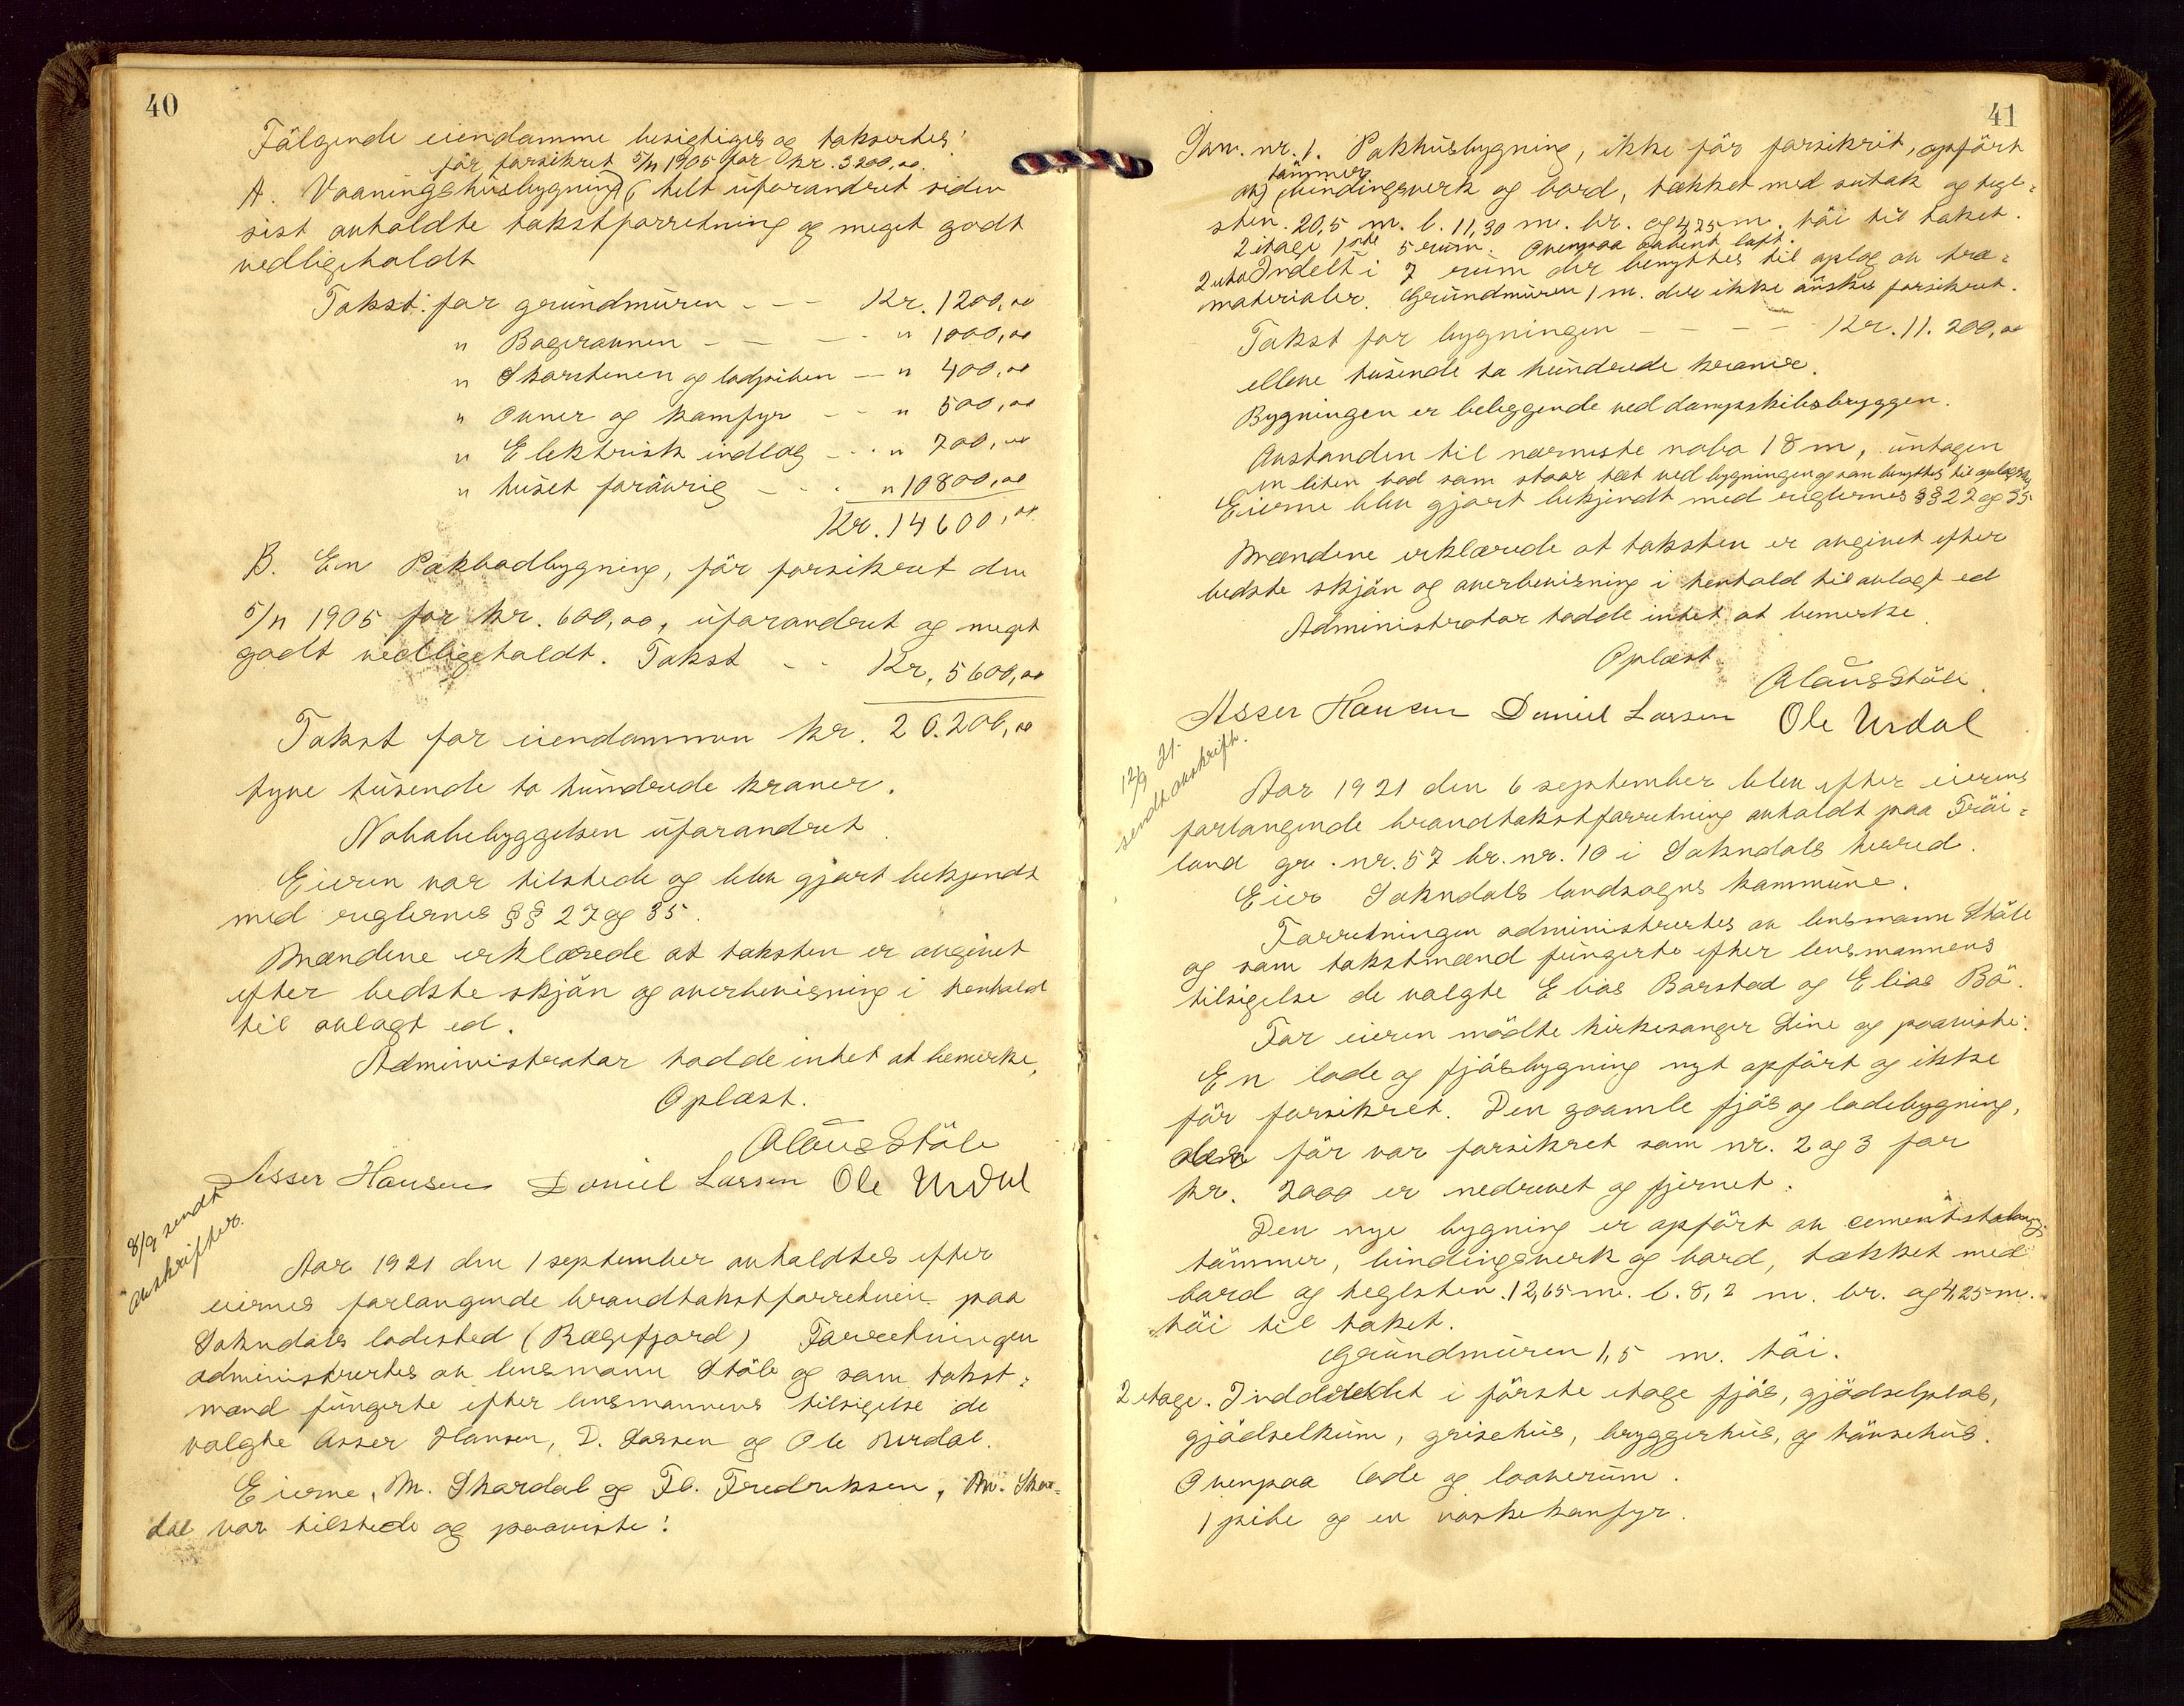 40
Fölgende eiendomme besigtiges og taksertes:
för forsikret 5/11 1905 for kr. 3200,00
A. Vaaningshusbygning, helt uforandret siden
sist avholdte takstforretning og meget godt
vedligeholdt
Takst: for grundmuren - - - Kr. 1200,00
" Bagerovnen - - - - " 1000,00
" Skorstenen og ladpiben - " 400,00
" Ovner og kamfyr - - " 500,00
" Elektrisk indlæg - - - " 700,00
" huset forövrig - - - " 10800,00
Kr. 14600,00
B. En Pakbodbygning, för forsikret den
5/11 1905 for kr. 600,00, uforandret og meget
godt vedligeholdt. Takst - - Kr. 5600,00
Takst for eiendommen kr. 20.200,00
tyve tusende to hundrede kroner.
Nabobebyggelsen uforandret.
Eieren var tilstede og blev gjort bekjendt
med reglernes §§ 27 og 35.
Mændene erklærede at taksten er avgivet
efter bedste skjön og overbevisning i henhold
til avlagt ed.
Administrator hadde intet at bemerke,
Oplæst.
Olaus Stöle
Asser Hansen Daniel Larsen Ole Urdal
8/9 sendt
avskrifter.
Aar 1921 den 1 september avholdtes efter
eiernes forlangende brandtakstforretnin paa
Sokndals ladested (Rægefjord) Forretningen
administrertes av lensmann Stöle og som takst=
mænd fungerte efter lensmannens tilsigelse de
valgte Asser Hansen, D. Larsen og Ole Urdal.
Eierne, M. Skardal og Fl. Fredriksen, M. Skar=
dal var tilstede og paaviste:
41
Jam. nr. 1. Pakhusbygning, ikke för forsikrit, opfört
tömmer
av bindingsverk og bord, tækket med sutak og tegl=
sten. 20,5 m. l. 11,30 m. br. og 4,75 m. höi til taket.
2 etage 1ste 5 rum. Ovenpaa aabent loft.
Indelt i 7 rum der benyttes til oplag av træ=
materialer. Grundmuren 1 m. der ikke önskes forsikret.
Takst for bygningen - - - - Kr. 11.200,00
elleve tusende to hundrede kroner.
Bygningen er beliggende ved dampskibsbryggen.
Avstanden til nærmeste nabo 18 m, untagen
en liten bod som staar tæt ved bygningen og som benyttes til oplagsr
Eierne blev gjort bekjendt med reglernes §§ 22 og 35
Mændene erklærede at taksten er avgivet efter
bedste skjön og overbevisning i henhold til avlagt ed
Administrator hadde intet at bemerke.
Oplæst.
Olaus Stöle.
Asser Hansen Daniel Larsen Ole Urdal
12/9 21.
sendt avskrift.
Aar 1921 den 6 september blev efter eierens
forlangende brandtakstforretning avholdt paa Fröi=
land gr. nr. 57 br. nr. 10 i Sokndals herred.
Eier Sokndals landsogns kommune.
Forretningen administrertes av lensmann Stöle
og som takstmænd fungerte efter lensmannens
tilsigelse de valgte Elias Barstad og Elias Bö.
For eieren mödte kirkesanger Line og paaviste:
En lade og fjösbygning nyt opfört og ikke
för forsikret. Den gaamle fjös og ladebygning,
der för var forsikret som nr. 2 og 3 for
kr. 2000 er nedrevet og fjernet.
Den nye bygning er opfört av cementstöbning,
tömmer, bindingsverk og bord, tækket med
bord og teglsten. 12,65 m. l. 8,2 m. br. og 4,25 m.
höi til taket.
Grundmuren 1,5 m. höi.
2 etage. Inddeldet i förste etage fjös, gjödselplas,
gjödselkum, grisehus, bryggerhus, og hönsehus.
Ovenpaa lade og laaverum.
1 pibe og en vaskekamfyr.